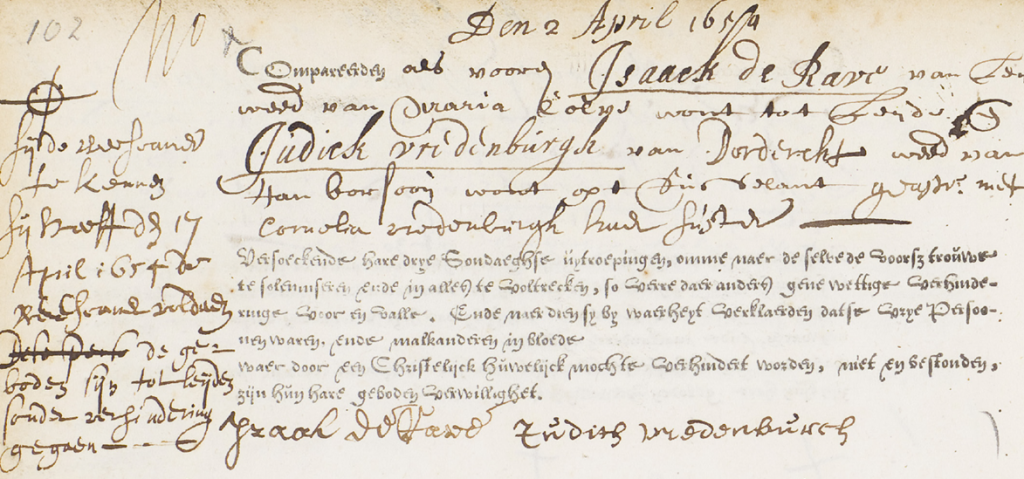 102
Den 2 April 1654
Compareerden als vooren Isaack de Rave van Ley
wedr van Maria wont tot Leyde &
Judick vredenburgh van Dordrecht wed van
Han borsooij wont opt geastr. met
Cornelia vredenburgh haer suster
Versoeckende hare drye Sondaeghse uytroepingen, omme naer de selve de voorsz trouwe
te solemniseren ende in alles te voltrecken, so verre daer anders gene wettige verhinde-
ringe voor en valle. Ende naer dien sy by waerheyt verklaerden datse vrye Persoo-
nen waren, ende malkanderen in bloede
waer door een Christelijck Huwelijck mochte verhindert worden, niet en bestonden,
zijn hun hare geboden verwillighet.
Isaak de Rave Judith vredenburch
sij de
te kennen
sij heeft den 17
April 1654 de
voldaen
de ge-
boden sijn tot leijden
sonder verhindering
gegaen